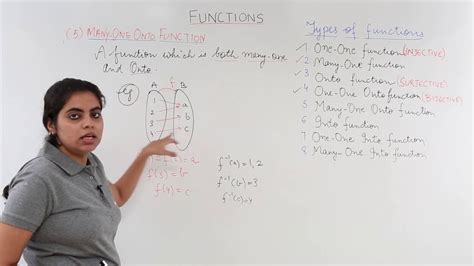 FUNCTIONS
(5) MANY-ONE ONTO FUNCTION
A function which is both many-one
and Onto.
eg
A f B
1
2
3
4
a
b
c
= f(2) = a
f(3) = b
f(4) = c
f⁻¹(a) = 1, 2
f⁻¹(b) = 3
f⁻¹(c) = 4
Types of functions
1 One-One function (INJECTIVE)
2 Many-One function
3 Onto function (SURJECTIVE)
4 One-One Onto function (BIJECTIVE)
5 Many-One Onto function
6 Into function
7 One-One Into function
8 Many-One Into function